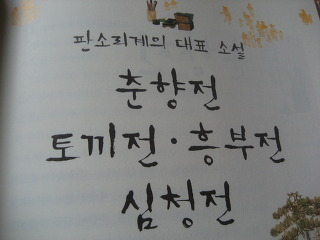 판소리계의 대표 소설
춘향전
토끼전·흥부전
심청전